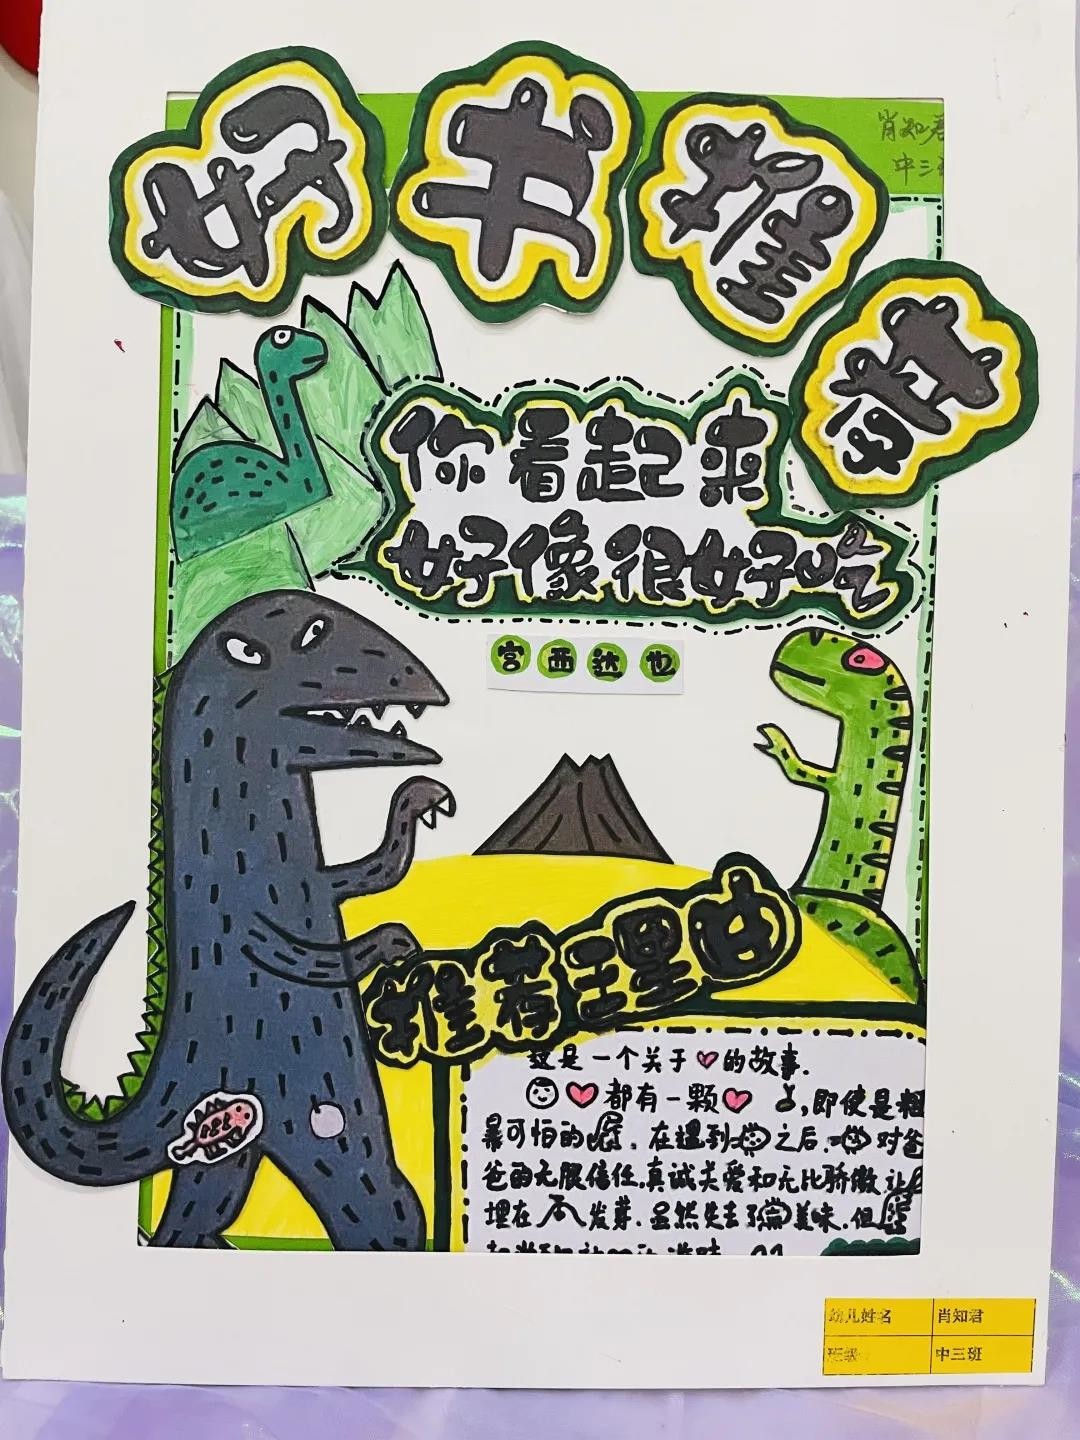 好书推荐
肖知君
中三班
你看起来
好像很好吃
宫西达也
推荐理由
这是一个关于的故事.
都有一颗,即使是粗
暴可怕的,在遇到之后,对爸
爸的无限信任,真诚关爱和无比骄傲让
埋在发芽.虽然失去了美味.但
幼儿姓名 肖知君
班级 中三班